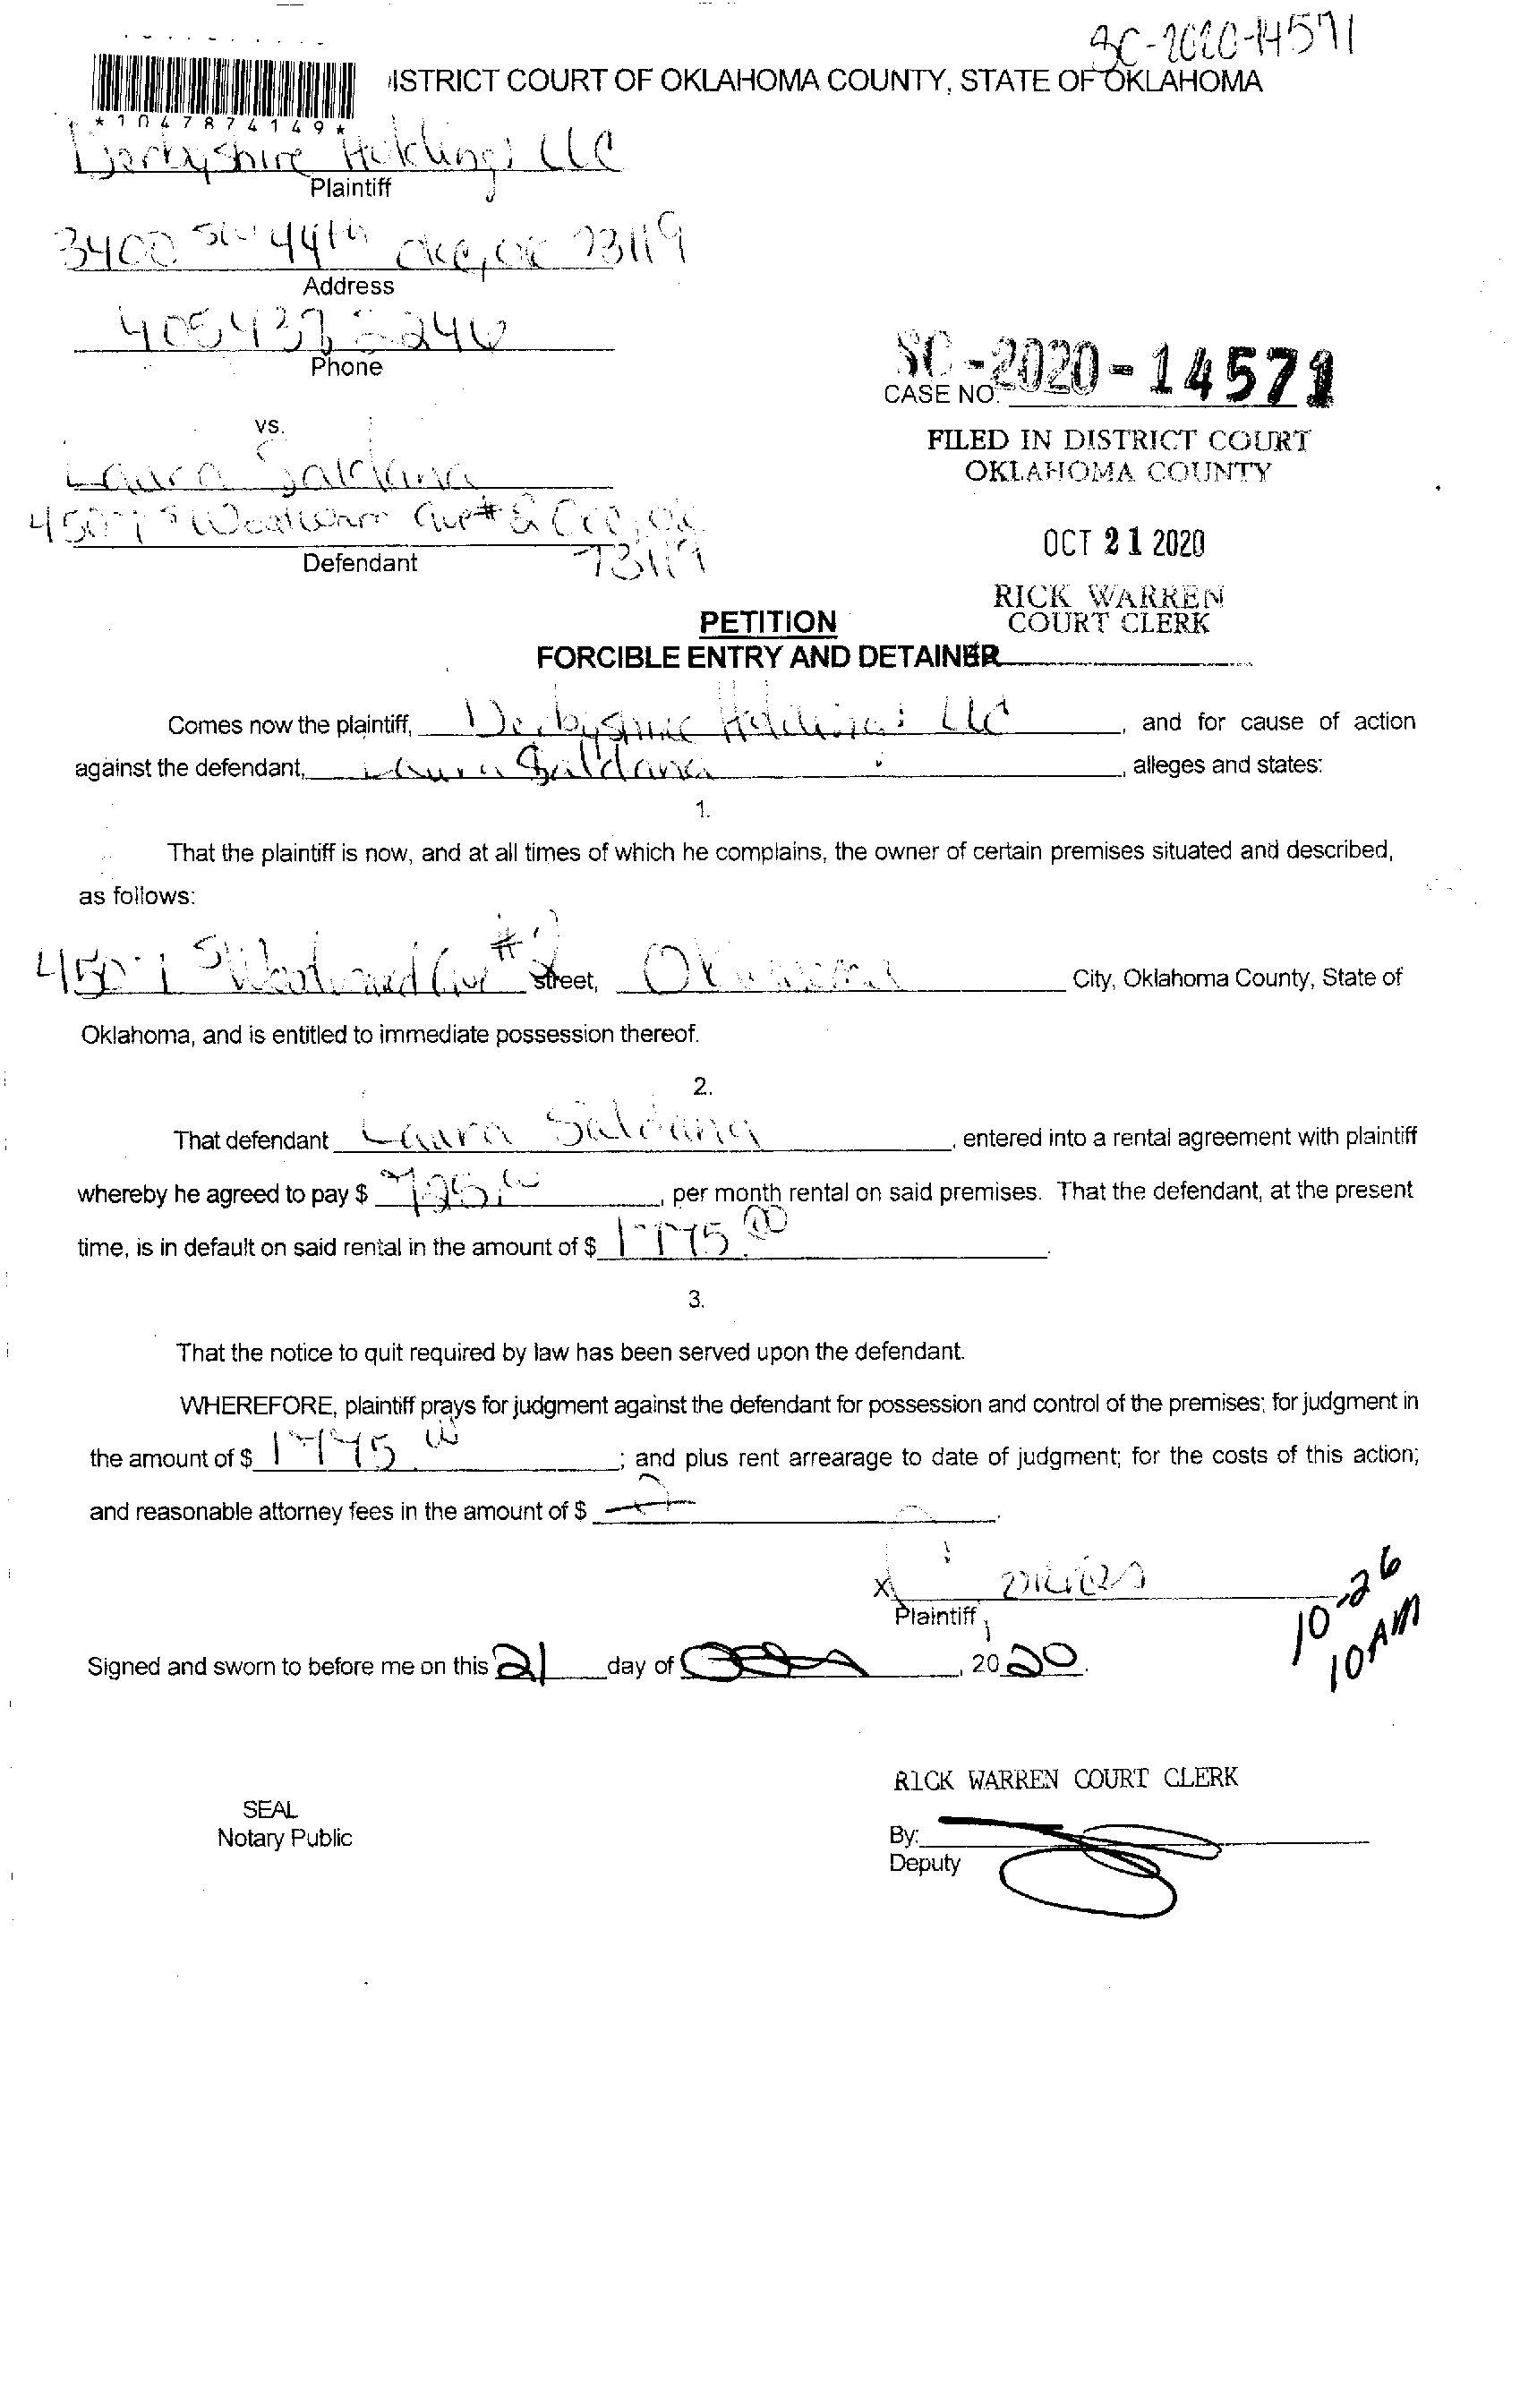 SC-2020-14571
ISTRICT COURT OF OKLAHOMA COUNTY, STATE OF OKLAHOMA
*1047874149*
Derbyshire Holdings LLC
Plaintiff
3400 SW 44th OKC, OK 73119
Address
Phone
SC-2020-14571
CASE NO.
vs.
FILED IN DISTRICT COURT
OKLAHOMA COUNTY
Laura Saldana
OCT 21 2020
73119
Defendant
RICK WARREN
COURT CLERK
PETITION
FORCIBLE ENTRY AND DETAINER
Comes now the plaintiff, Derbyshire Holdings LLC, and for cause of action
against the defendant, Laura Saldana, alleges and states:
1.
That the plaintiff is now, and at all times of which he complains, the owner of certain premises situated and described,
as follows:
street, Oklahoma City, Oklahoma County, State of
Oklahoma, and is entitled to immediate possession thereof.
2.
That defendant Laura Saldana, entered into a rental agreement with plaintiff
whereby he agreed to pay $ per month rental on said premises. That the defendant, at the present
time, is in default on said rental in the amount of $ 1775.00.
3.
That the notice to quit required by law has been served upon the defendant.
WHEREFORE, plaintiff prays for judgment against the defendant for possession and control of the premises; for judgment in
the amount of $ 1775.00; and plus rent arrearage to date of judgment; for the costs of this action;
and reasonable attorney fees in the amount of $
X
Plaintiff
10-26
10AM
Signed and sworn to before me on this 21 day of , 2020.
RICK WARREN COURT CLERK
SEAL
Notary Public
By:
Deputy